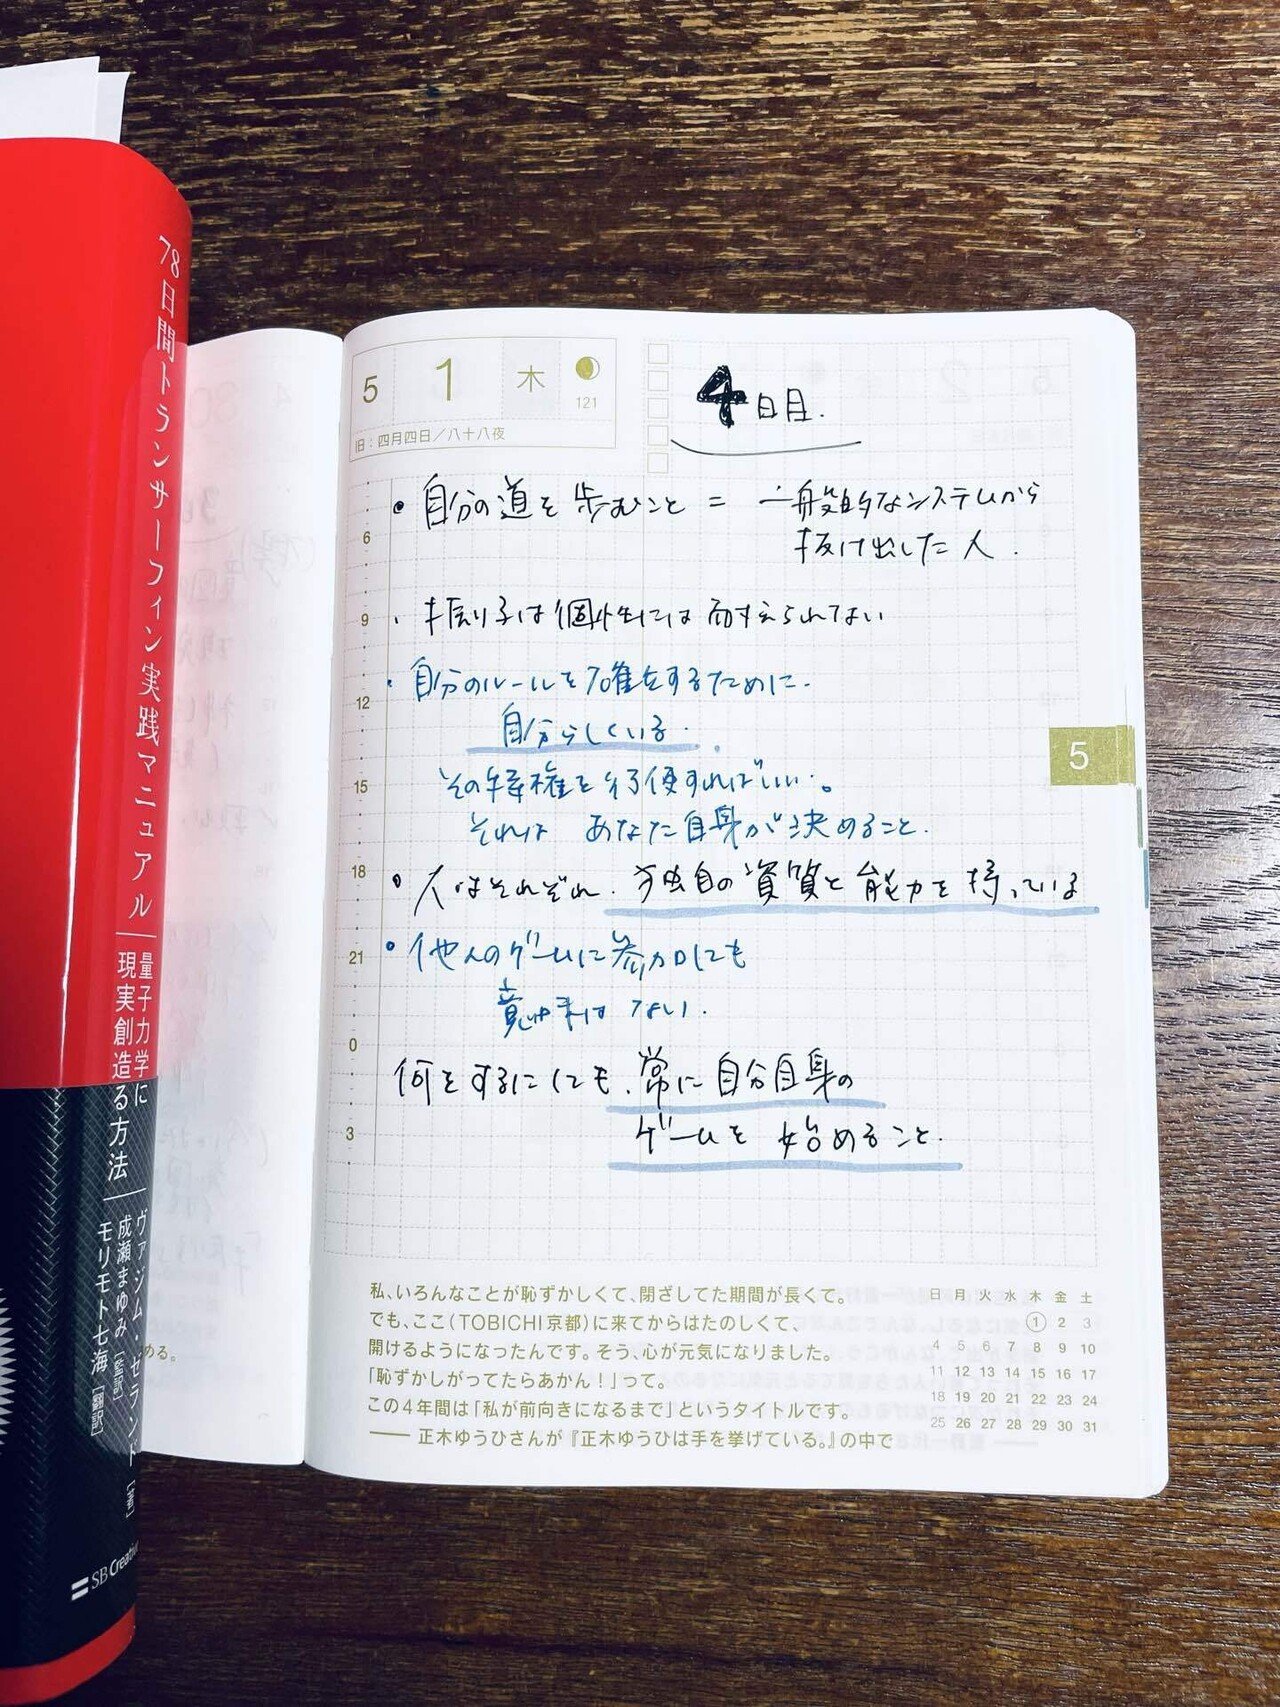 78日間トランサーフィン実践マニュアル
量子力学に
現実創造る方法
ヴァジム・ゼランド[著]
成瀬まゆみ[監訳]
モリモト七海[翻訳]
SB Creative
める。
5 1 木
121
旧：四月四日／八十八夜
4日目.
• 自分の道を歩むこと = 一般的なシステムから
抜け出した人.
・振り子は個性には耐えられない
・自分のルールを確立するために.
自分らしくいる.
その特権を行使すればいい。
それは あなた自身が決めること.
• 人はそれぞれ. 独自の資質と能力を持っている
• 他人のゲームに参加しても
意味はない.
何をするにしても、常に自分自身の
ゲームを始めること.
6
9
12
15
18
21
0
3
5
私、いろんなことが恥ずかしくて、閉ざしてた期間が長くて。
でも、ここ（TOBICHI京都）に来てからはたのしくて、
開けるようになったんです。そう、心が元気になりました。
「恥ずかしがってたらあかん！」って。
この4年間は「私が前向きになるまで」というタイトルです。
—— 正木ゆうひさんが『正木ゆうひは手を挙げている。』の中で
日 月 火 水 木 金 土
1 2 3
4 5 6 7 8 9 10
11 12 13 14 15 16 17
18 19 20 21 22 23 24
25 26 27 28 29 30 31